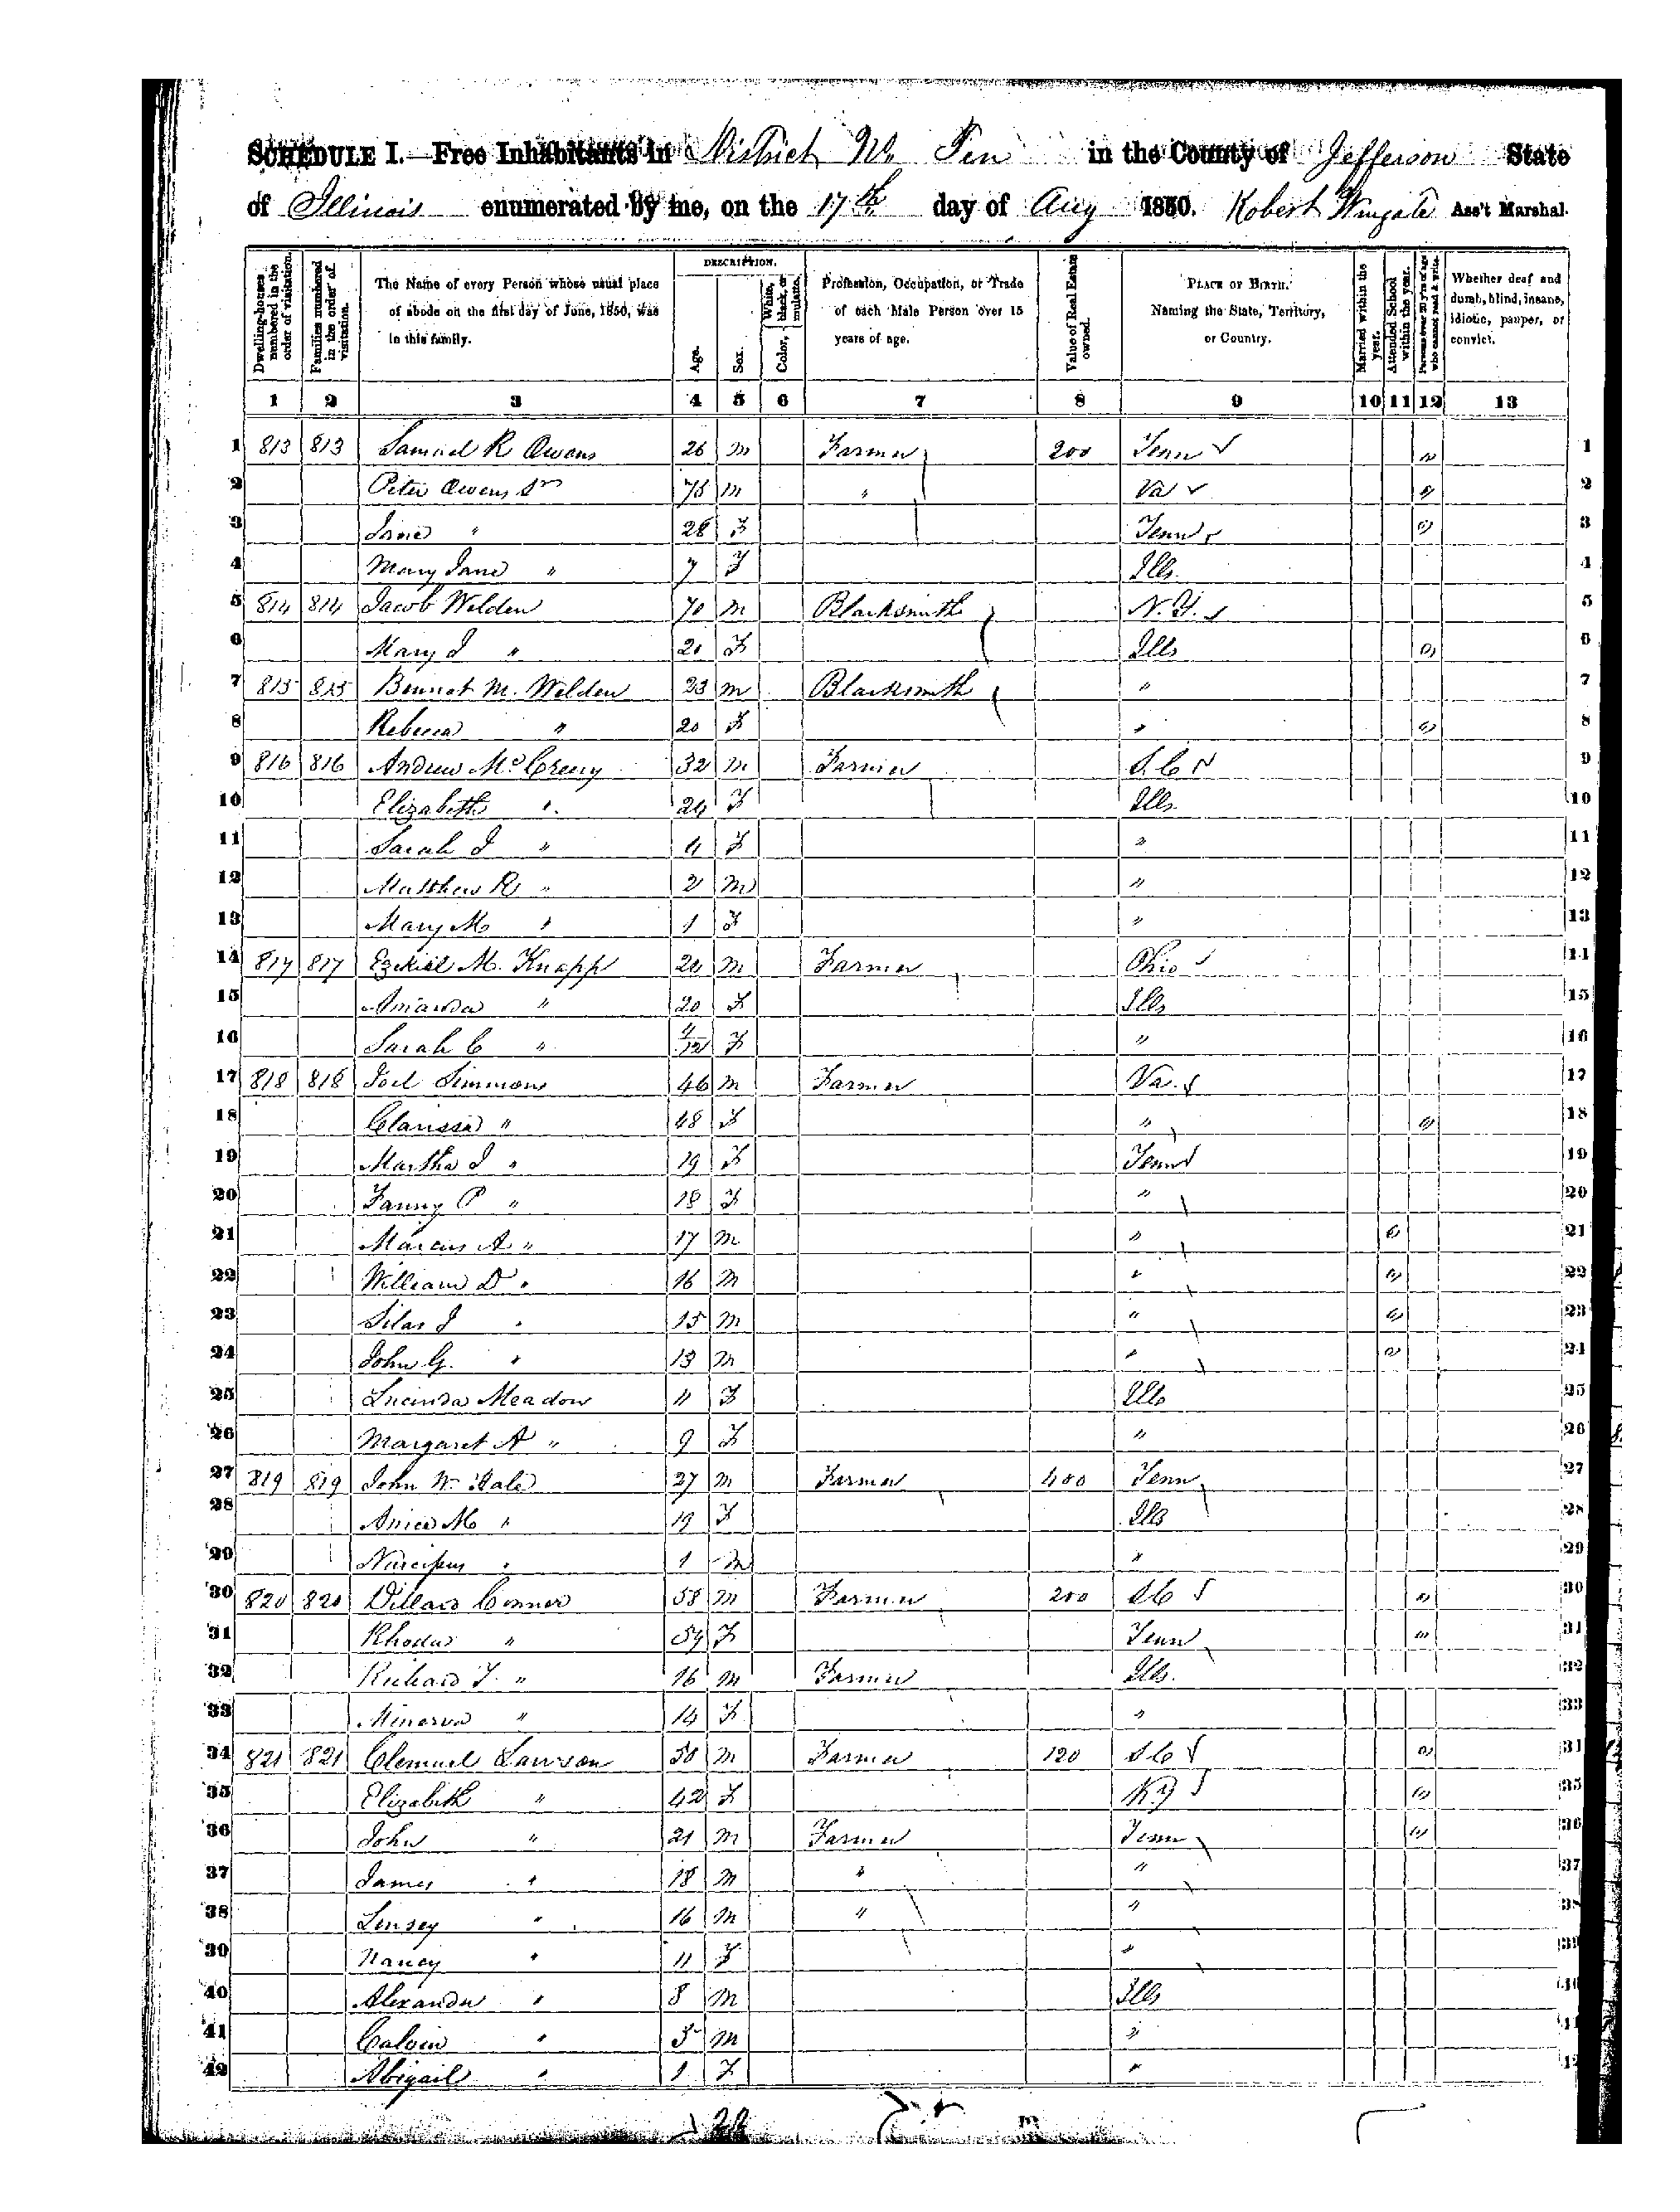 SCHEDULE I.—Free Inhabitants in District No. Ten in the County of Jefferson State
of Illinois enumerated by me, on the 17th day of Aug 1850. Robert Wingate Ass't Marshal.
Dwelling-houses numbered in the order of visitation.
Families numbered in the order of visitation.
The Name of every Person whose usual place of abode on the first day of June, 1850, was in this family.
DESCRIPTION.
Age.
Sex.
Color, White, black, or mulatto.
Profession, Occupation, or Trade of each Male Person over 15 years of age.
Value of Real Estate owned.
PLACE OF BIRTH. Naming the State, Territory, or Country.
Married within the year.
Attended School within the year.
Persons over 20 y'rs of age who cannot read & write.
Whether deaf and dumb, blind, insane, idiotic, pauper, or convict.
1 2 3 4 5 6 7 8 9 10 11 12 13
1 813 813 Samuel R Owens 26 m Farmer 200 Tenn 1
2 Peter Owens Sr 75 m " Va 2
3 Jane " 28 F Tenn 3
4 Mary Jane " 7 F Ills. 4
5 814 814 Jacob Welden 70 m Blacksmith N.Y. 5
6 Mary J " 20 F Ills 6
7 815 815 Bennet M. Welden 23 m Blacksmith " 7
8 Rebecca " 20 F " 8
9 816 816 Andrew McCreery 32 m Farmer S.C 9
10 Elizabeth " 24 F Ills. 10
11 Sarah J " 4 F " 11
12 Matthew R " 2 m " 12
13 Mary M " 1 F " 13
14 817 817 Ezekiel M. Knapp 24 m Farmer Ohio 14
15 Amanda " 20 F Ills 15
16 Sarah C " 4/12 F " 16
17 818 818 Joel Simmons 46 m Farmer Va. 17
18 Clarissa " 48 F " 18
19 Martha J " 19 F Tenn 19
20 Fanny P " 18 F " 20
21 Marcus A " 17 m " 21
22 William D " 16 m " 22
23 Silas J " 15 m " 23
24 John G. " 13 m " 24
25 Lucinda Meadow 11 F Ills 25
26 Margaret A " 9 F " 26
27 819 819 John W. Hale 27 m Farmer 400 Tenn 27
28 M " 19 F Ills 28
29 " 1 m " 29
30 820 820 Connor 58 m Farmer 200 S C 30
31 Rhoda " 54 F Tenn 31
32 Richard T. " 16 m Farmer Ills. 32
33 Minerva " 14 F " 33
34 821 821 Clemuel Lawson 50 m Farmer 120 S C 34
35 Elizabeth " 42 F K.y 35
36 John " 21 m Farmer Tenn 36
37 James " 18 m " " 37
38 Linsey " 16 m " " 38
39 Nancy " 11 F " 39
40 Alexander " 8 m Ills 40
41 Calvin " 5 m " 41
42 Abigail " 1 F " 42